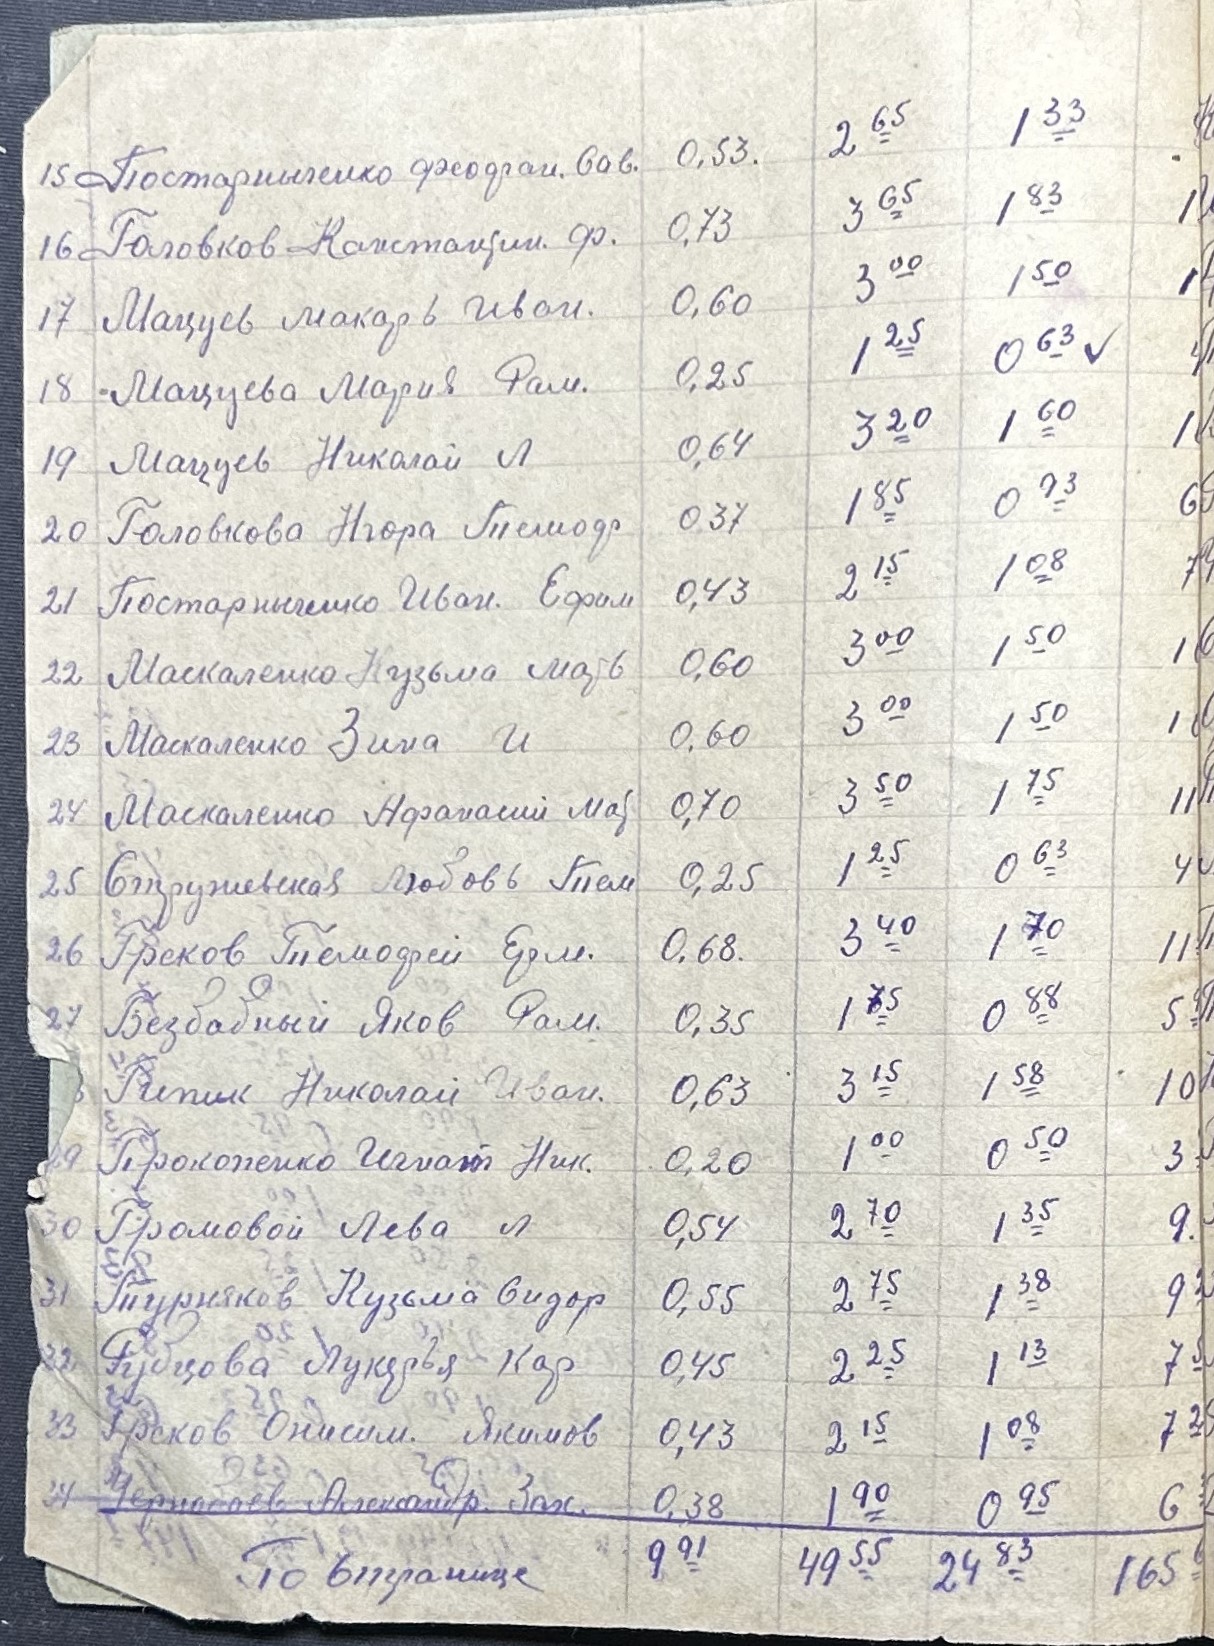 15 Постарниченко Феодгаи. Сав. 0,53. 2 65 1 33
16 Головков Канстантин. Ф. 0,73 3 65 1 83 1
17 Мацуев Макаръ Иван. 0,60 3 00 1 50 1
18 Мацуева Мария Рам. 0,25 1 25 0 63 ✓ 4
19 Мацуев Николай Л 0,64 3 20 1 60 1
20 Головкова Нгора Темодр 0.37 1 85 0 93 6
21 Постарниченко Иван. Ефим 0,43 2 15 1 08 7
22 Маскаленко Кузьма Матв 0,60 3 00 1 50 1
23 Маскаленко Зина И 0,60 3 00 1 50 1
24 Маскаленко Афанасий Мат 0,70 3 50 1 75 11
25 Стружевская Любовь Тем 0,25 1 25 0 63 4
26 Греков Темофей Ерм. 0,68. 3 40 1 70 11
27 Безбабный Яков Рам. 0,35 1 75 0 88 5
Репик Николай Иван. 0,63 3 15 1 58 10
29 Прокопенко Игнат Ник. 0,20 1 00 0 50 3
30 Громовой Лева Л 0,54 2 70 1 35 9.
31 Турняков Кузьма Сидор 0,55 2 75 1 38 9
32 Рубцова Лукерья Кар 0,45 2 25 1 13 7
33 Греков Онисим. Якимов 0,43 2 15 1 08 7
34 Александр. Зах. 0,38 1 90 0 95 6
По странице 9 91 49 55 24 83 165